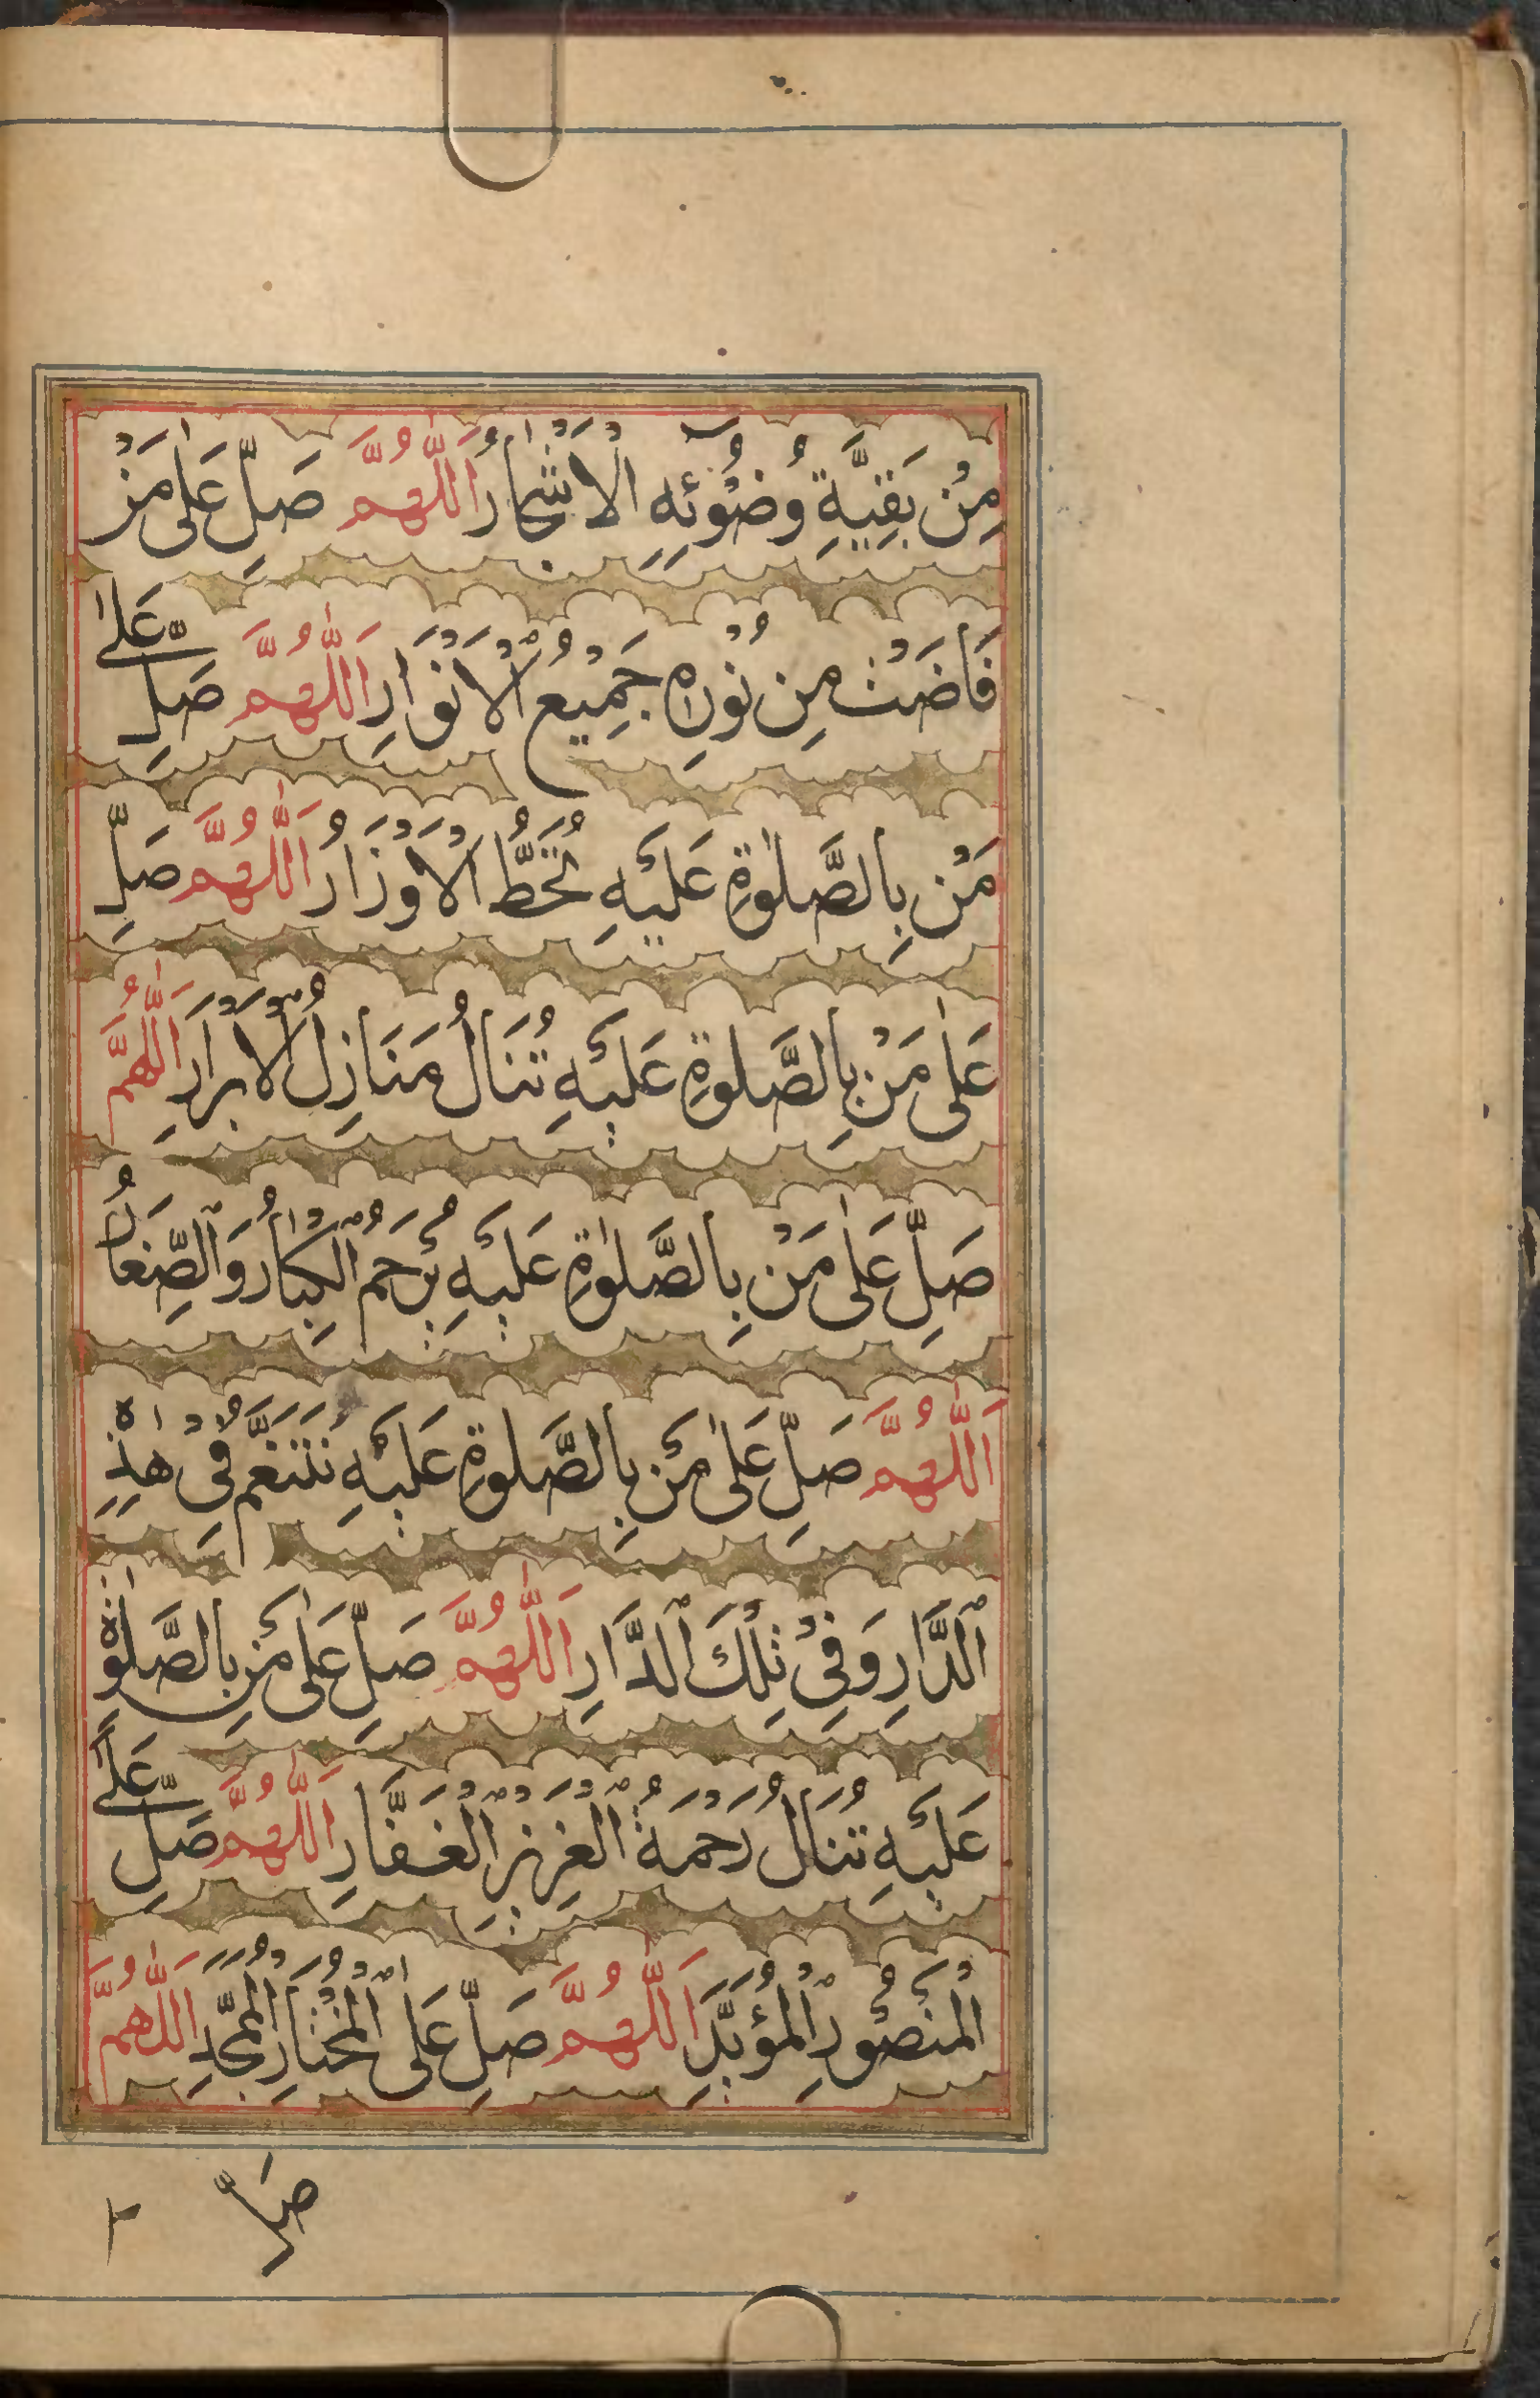 مِنْ بَقِيَّةِ وُضُوْئِهِ الْاَشْجَارُ اَللّٰهُمَّ صَلِّ عَلٰى مَنْ
فَاضَتْ مِنْ نُوْرِهٖ جَمِيْعُ الْاَنْوَارِ اَللّٰهُمَّ صَلِّ عَلٰى
مَنْ بِالصَّلٰوةِ عَلَيْهِ تُحَطُّ الْاَوْزَارُ اَللّٰهُمَّ صَلِّ
عَلٰى مَنْ بِالصَّلٰوةِ عَلَيْهِ تُنَالُ مَنَازِلُ الْاَبْرَارِ اَللّٰهُمَّ
صَلِّ عَلٰى مَنْ بِالصَّلٰوةِ عَلَيْهِ يُرْحَمُ الْكِبَارُ وَالصِّغَارُ
اَللّٰهُمَّ صَلِّ عَلٰى مَنْ بِالصَّلٰوةِ عَلَيْهِ نَتَنَعَّمُ فِيْ هٰذِهِ
الدَّارِ وَفِيْ تِلْكَ الدَّارِ اَللّٰهُمَّ صَلِّ عَلٰى مَنْ بِالصَّلٰوةِ
عَلَيْهِ تُنَالُ رَحْمَةُ الْعَزِيْزِ الْغَفَّارِ اَللّٰهُمَّ صَلِّ عَلَى
الْمَنْصُوْرِ الْمُؤَيَّدِ اَللّٰهُمَّ صَلِّ عَلَى الْمُخْتَارِ الْمُمَجَّدِ اَللّٰهُمَّ
صَلِّ